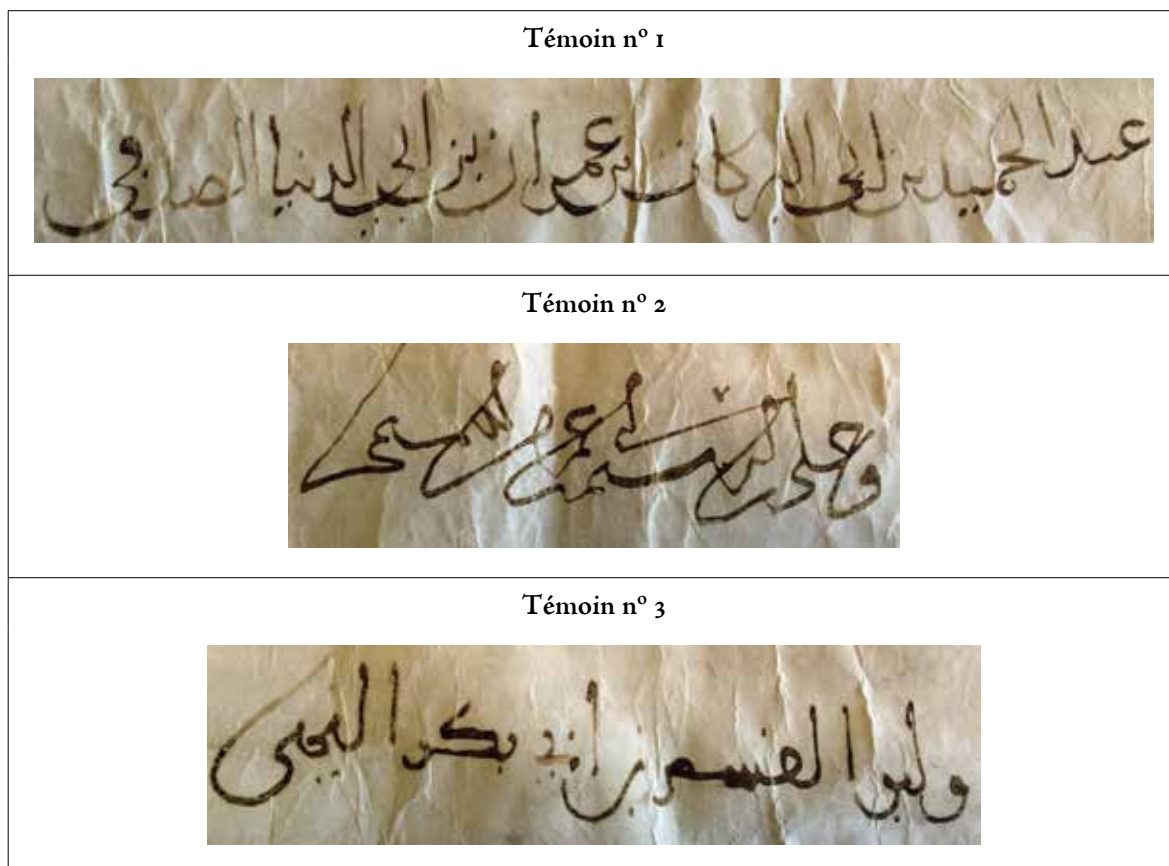 Témoin nº 1
عبد الحميد بن ابي البركات بن عمران بن ابي الدنيا الصدفي
Témoin nº 2
وعلى عمر
Témoin nº 3
وابو القسم بن ابي بكر اليمني